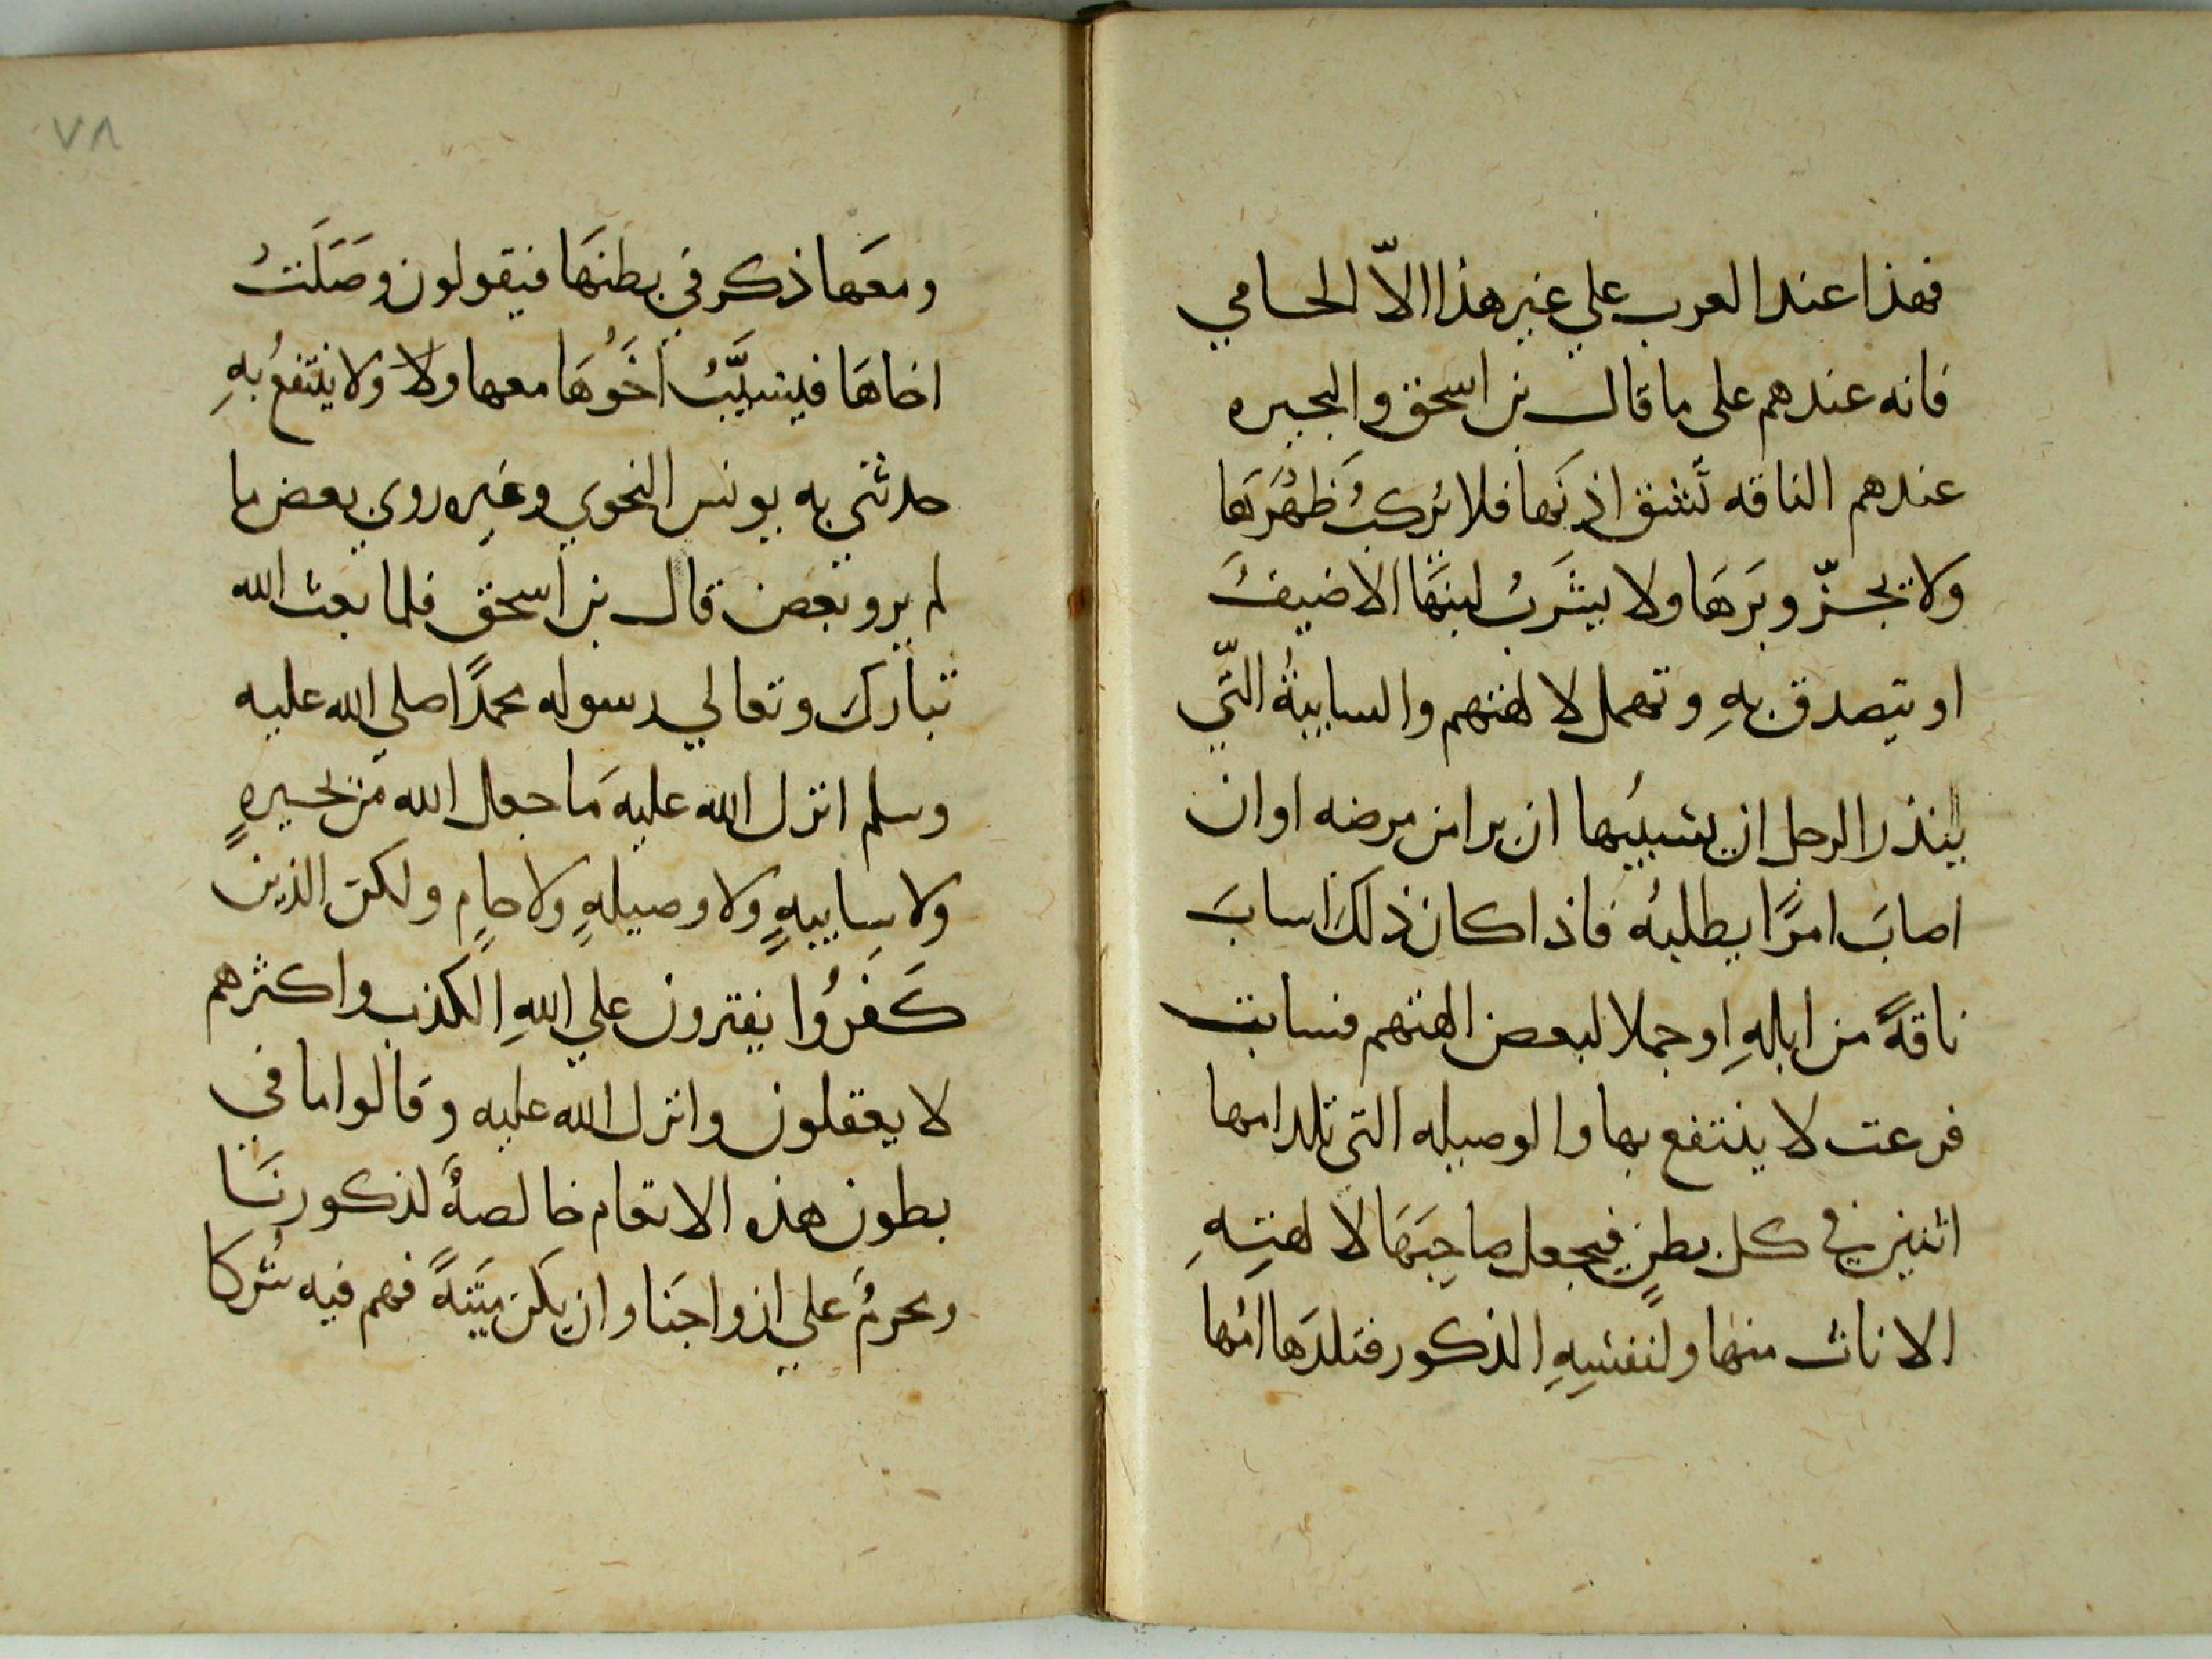 فهذا عند العرب علي غير هذا الاّ الحامي
فانه عندهم على ما قال بن اسحق والبحيره
عندهم الناقه تَشقق اذنَها فلا يُركبُ ظَهرَها
ولا تجزّ وبَرَهَا ولا يشَربُ لبنَهَا الا ضيفَ
او يتصدق بهِ وتهمل لالهتهم والسايبةُ التّي
ينذر الرجل ان يسيبُها ان برا من مرضه او ان
اصابَ امرًا يطلبُه فاذا كان ذلكَ اسابَ
ناقةً من ابلهِ او جملا لبعض الهتهم فسابت
فرعت لا ينتفع بها والوصيله التى تلد امها
اثنين في كل بطنٍ فيجعل صاحِبَهَا لالهتِهِ
الاناث منها ولنفسِهِ الذكور فتلدَها امُها
٧٨
ومعَها ذكر في بطنَهَا فيقولون وصَلَتُ
اخاهَا فيسَيّبُ اخَوُهَا معها ولا ولا ينتفعُ بهِ
حدثنى به يونس النحوي وغيره روي بعض ما
لم يرو بعض قال بن اسحق فلما بعث الله
تبارك وتعالي رسوله محمدًا صلي الله عليه
وسلم انزل الله عليهَ ما جعل الله مَن بحيرهٍ
ولا سايبهٍ ولا وصيلهٍ ولا حامٍ ولكن الذين
كَفرُوا يفترون علي اللهِ الكذب واكثرهم
لا يعقلون وانزل الله عليه وقالوا ما في
بطون هذه الانعام خالصهٌ لذكورنَا
ومحرمٌ علي ازواجنَا وان يكن ميتَهً فهم فيه شُركا